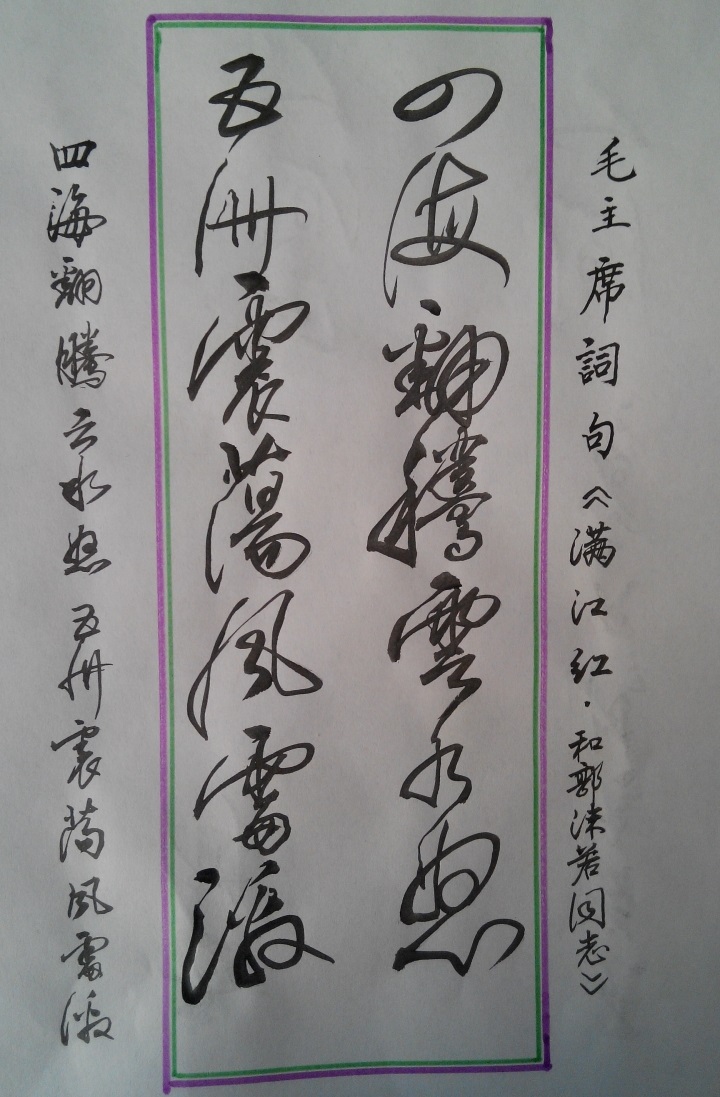 毛主席詞句《满江红·和郭沫若同志》
四海翻騰雲水怒
五洲震蕩風雷激
四海翻騰云水怒 五洲震蕩風雷激